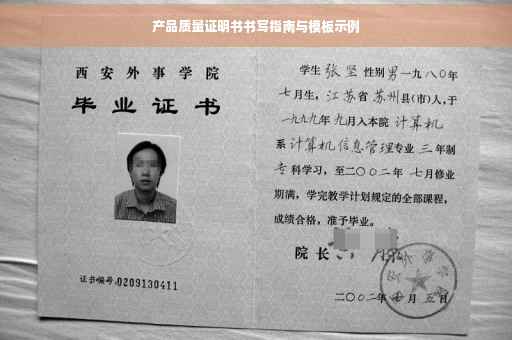 产品质量证明书书写指南与模板示例
西安外事学院
毕业证书
证书编号:0209130411
学生 张坚 性别 男 一九八〇年
七月生，江苏省 苏州县(市)人，于
一九九九年 九月入本院 计算机
系 计算机信息管理专业 三 年制
专 科学习，至二〇〇二年 七月修业
期满，学完教学计划规定的全部课程，
成绩合格，准予毕业。
院长
二〇〇二年 月 五日